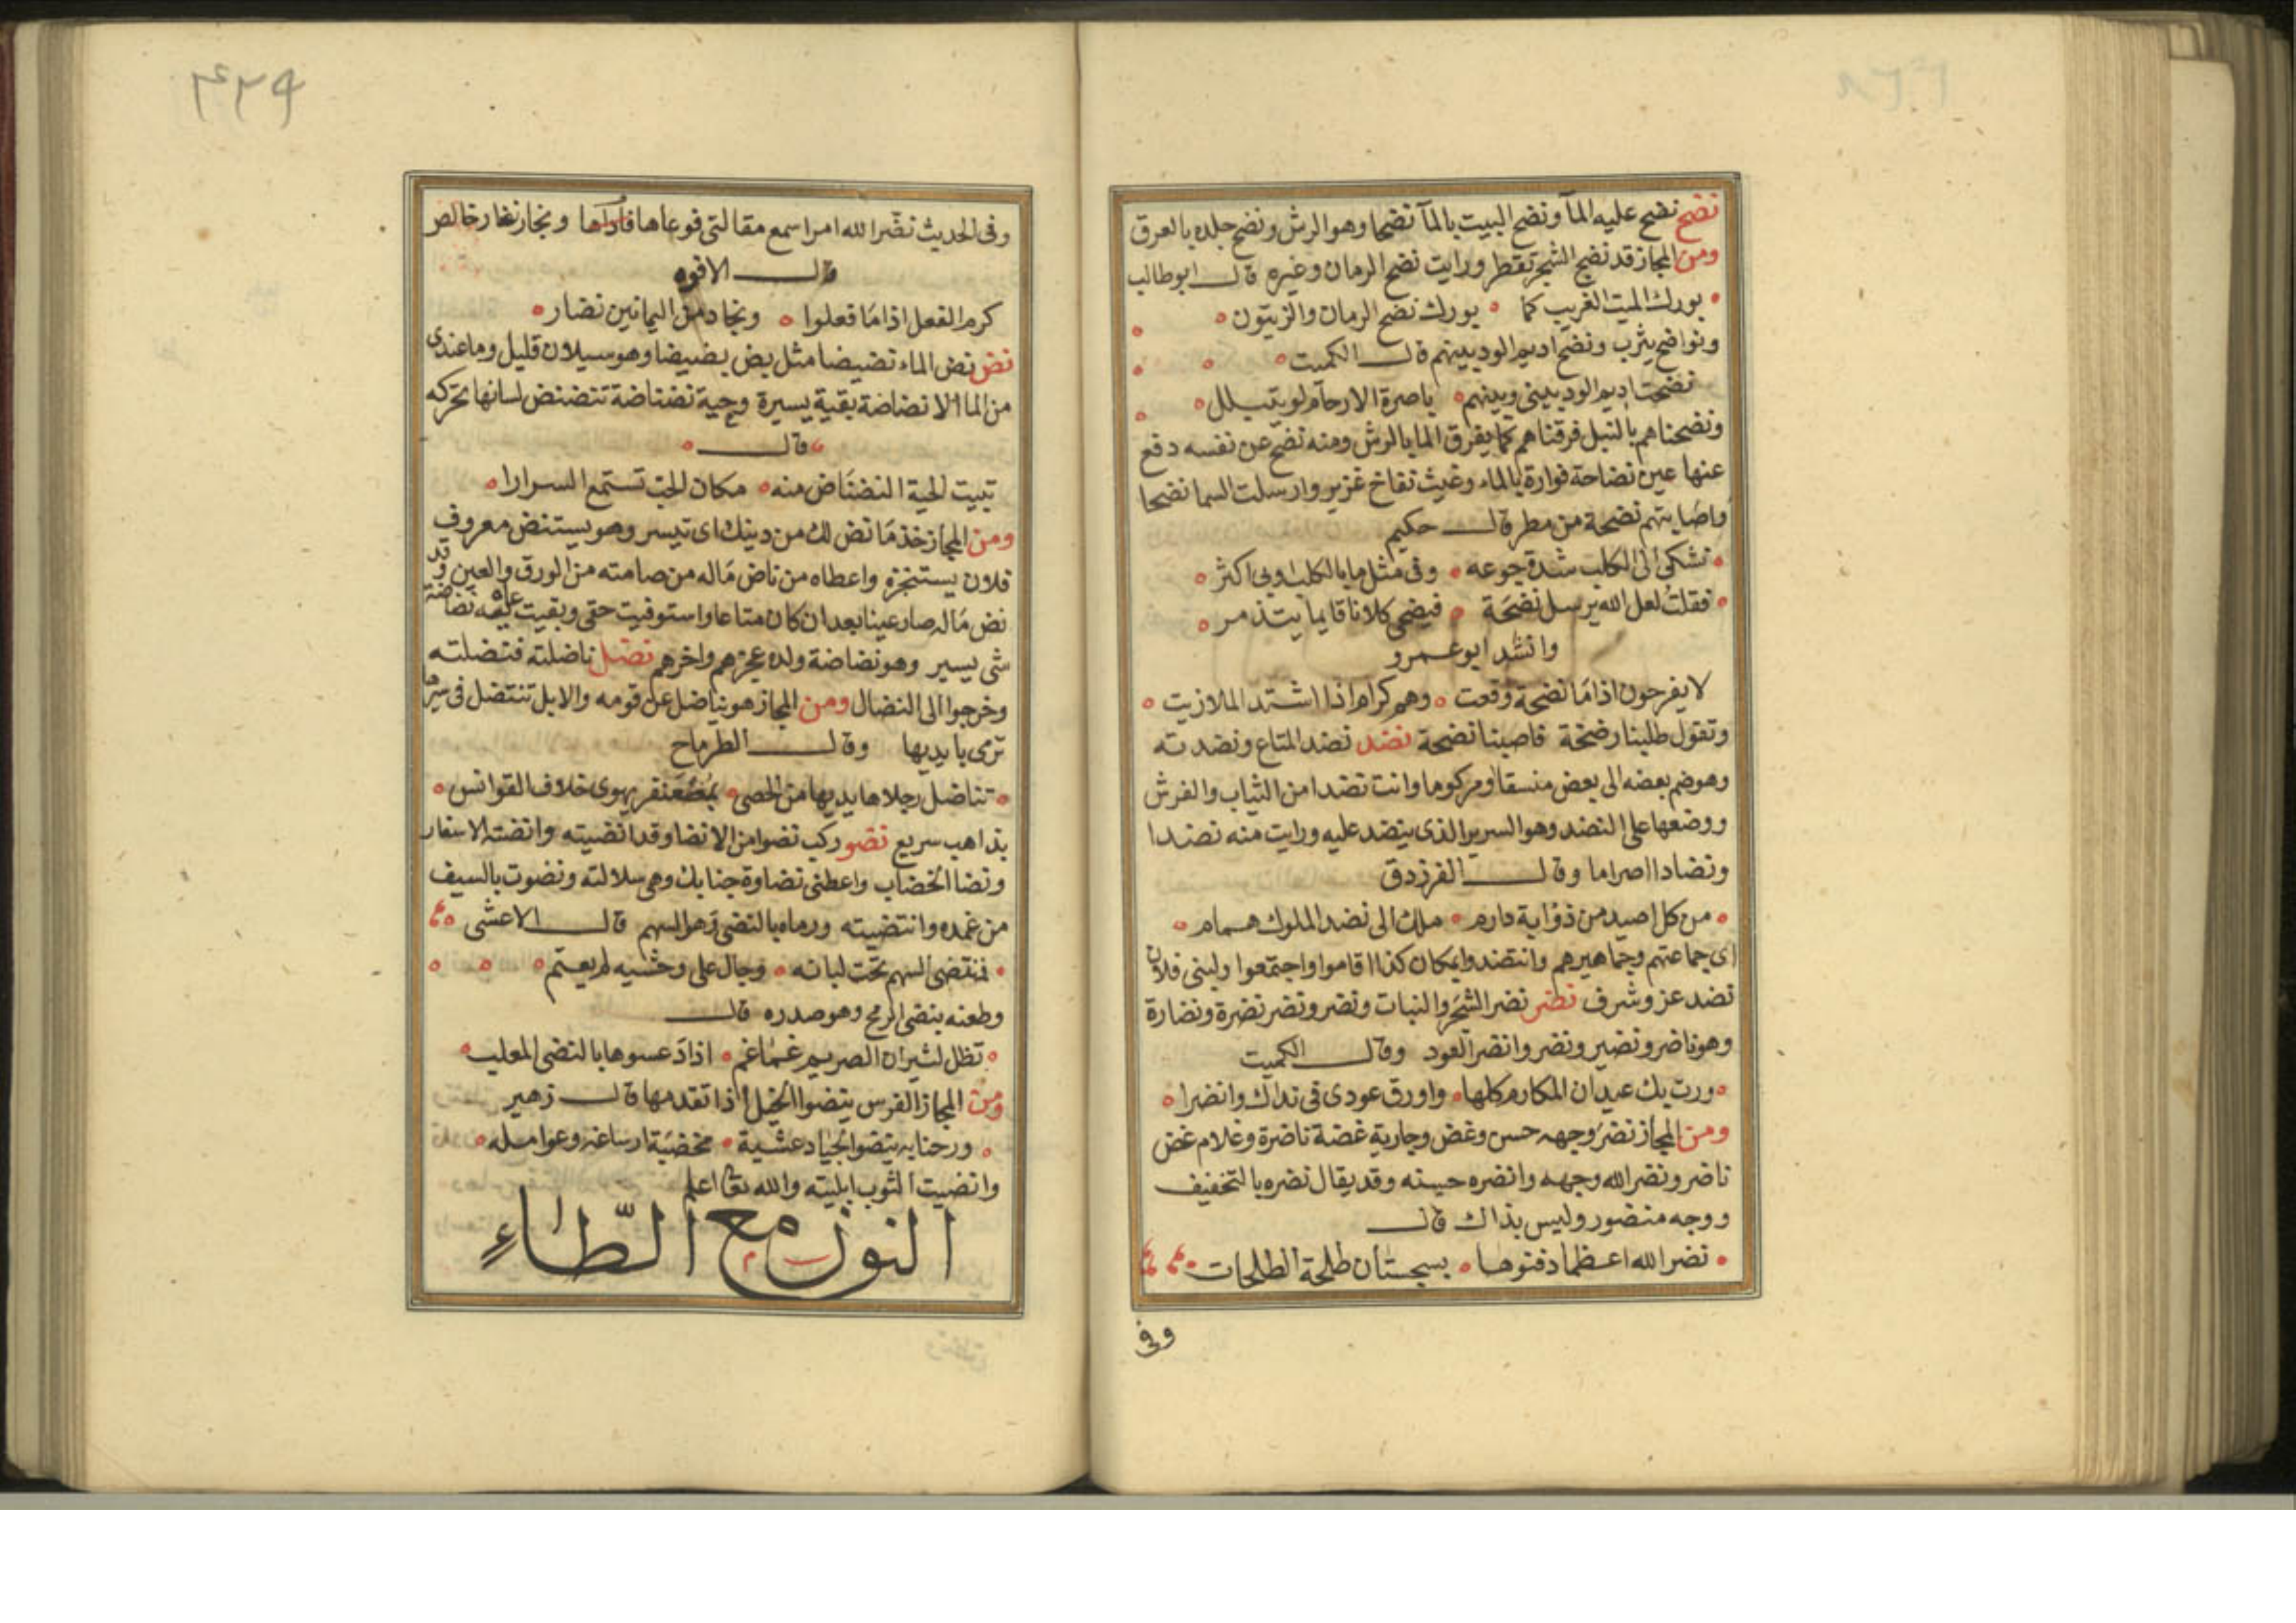 نضح نضح عليه المآ ونضح البيت بالمآ نضحا وهو الرش ونضح جلده بالعرق
ومن المجاز قد نضح الشجر تفطر ورايت نضح الرمان وغيره قال ابو طالب
بورك الميت الغريب كما بورك نضح الرمان والزيتون
ونواضح يثرب ونضح اديم الود بينهم قال الكميت
نضحت اديم الود بينى وبينهم باصرة الارحام لو يتبلل
ونضحناهم بالنبل فرقناهم كما يفرق الما بالرش ومنه نضح عن نفسه دفع
عنها عين نضاحة فوارة بالماء وغيث نفاخ غزير وارسلت السما نضحا
واصابتهم نضحة من مطر قال حكيم
تشكى الى الكلب شدة جوعه وفى مثل ما بالكلب او بى اكثر
فقلت لعل الله يرسل نضحة فيضحى كلانا قايما يتذمر
وانشد ابو عمرو
لا يفرحون اذا ما نضحة وقعت وهم كرام اذا اشتد الملازيت
وتقول طلبنا رضخة فاصبنا نضحة نضد نضد المتاع ونضدته
وهو ضم بعضه الى بعض منسقا او مركوما وانت نضدا من الثياب والفرش
ووضعها على النضد وهو السرير الذى ينضد عليه ورايت منه نضدا
ونضادا اصراما وقال الفرزدق
من كل اصيد من ذؤابة دارم ملك الى نضد الملوك همام
اى جماعتهم وجماهيرهم وانتضدوا بمكان كذا اقاموا واجتمعوا ولبنى فلان
نضد عز وشرف نضر نضر الشجر والنبات ونضر ونضر نضرة ونضارة
وهو ناضر ونضير ونضر وانضر العود وقال الكميت
ورت بك عيدان المكارم كلها واورق عودى فى نداك وانضرا
ومن المجاز نضر وجهه حسن وغض وجارية غضة ناضرة وغلام غض
ناضر ونضر الله وجهه وانضره حسنه وقد يقال نضره بالتخفيف
ووجه منضور وليس بذاك قال
نضر الله اعظما دفنوها بسجستان طلحة الطلحات
وفى
٤٢٩
وفى الحديث نضر الله امرا سمع مقالتى فوعاها فاداها ونجار نضار خالص
قال الافوه
كرم الفعل اذا ما فعلوا ونجاد من اليمانين نضار
نض نض الماء نضيضا مثل بض بضيضا وهو سيلان قليل وما عندى
من الما الا نضاضة بقية يسيرة وحية نضناضة تنضنض لسانها تحركه
قال
تبيت الحية النضناض منه مكان الحب تستمع السرارا
ومن المجاز خذ ما نض لك من دينك اى تيسر وهو يستنض معروف
فلان يستنجزه واعطاه من ناض ماله من صامته من الورق والعين وقد
نض ماله صار عينا بعد ان كان متاعا واستوفيت حقى وبقيت عليه نضاضة
شى يسير وهو نضاضة ولده عجزهم واخرهم نضل ناضلته فنضلته
وخرجوا الى النضال ومن المجاز هو يناضل عن قومه والابل تنتضل فى سيرها
ترمى بايديها وقال الطرماح
تناضل رجلاها يديها من الحصى يهوى خلاف القوانس
بذاهب سريع نضو ركب نضوا من الانضا وقد انضيته وانضته الاسفار
ونضا الخضاب واعطنى نضاوة حنابك وهى سلالته ونضوت بالسيف
من غمده وانتضيته ورماه بالنضى وهو السهم قال الاعشى
فنضى السهم تحت لبانه وجال على وحشيه لم يعتم
وطعنه بنضى الرمح وهو صدره قال
تظل لثيران الصريم غماغم اذا دعسوها بالنضى المعلب
ومن المجاز الفرس ينضوا الخيل اذا تقدمها قال زهير
ورحنا به ينضوا الجياد عشية مخضبة ارساغه وعوامله
وانضيت الثوب ابليته والله تعا اعلم
النون مع الطاء